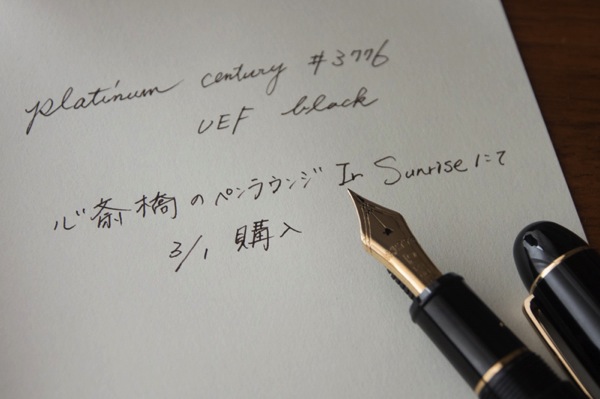 platinum century #3776
UEF black
心斎橋のペンラウンジ In Sunriseにて
3/1 購入